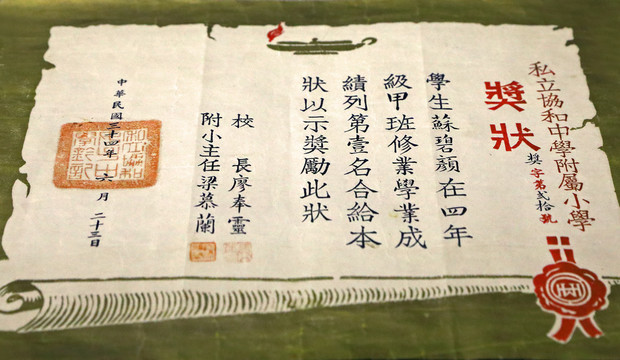 私立協和中學附屬小學
獎狀
獎字第貳拾號
學生蘇碧顏在四年
級甲班修業學業成
績列第壹名合給本
狀以示獎勵此狀
校長廖奉靈
附小主任梁慕蘭
中華民國三十四年 月二十三日